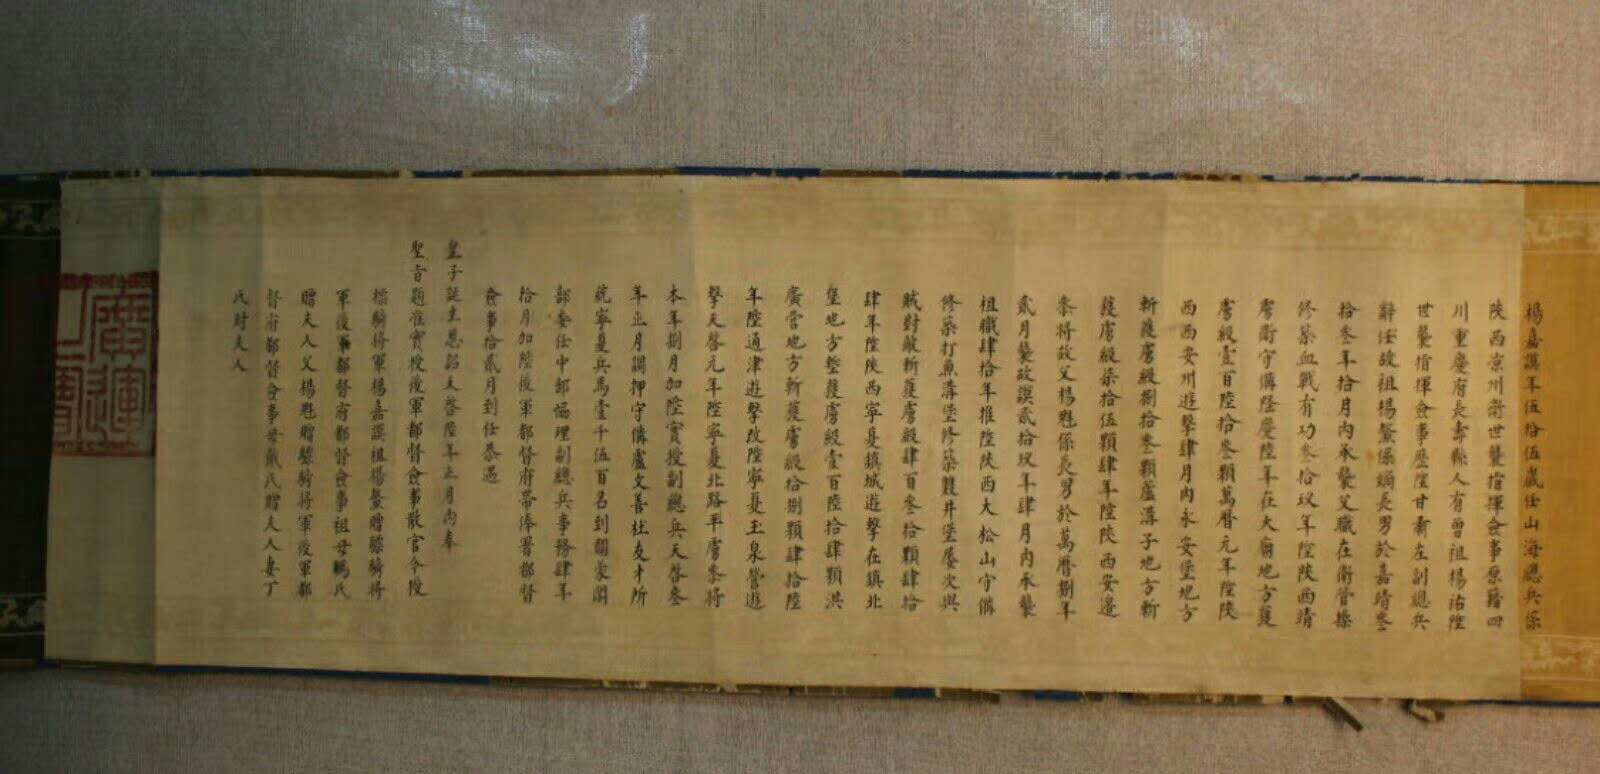 楊嘉謨年伍拾伍歲任山海總兵係
陝西凉州衛世襲指揮僉事原籍四
川重慶府長壽縣人有曾祖楊祐陞
世襲指揮僉事歷陞甘肅左副總兵
辭任故祖楊 係嫡長男於嘉靖叁
拾叁年拾月內承襲父職在衛管操
修築血戰有功叁拾玖年陞陝西靖
虜衛守備隆慶陸年在大廟地方獲
虜級壹百陸拾叁顆萬曆元年陞陝
西西安州遊擊肆月內永安堡地方
斬獲虜級捌拾叁顆蘆溝子地方斬
獲虜級柒拾伍顆肆年陞陝西安邊
叅將故父楊魁係長男於萬曆捌年
貳月襲故謨貳拾玖年肆月內承襲
祖職肆拾年推陞陝西大松山守備
修築打魚溝堡修築雙井堡屢次與
賊對敵斬獲虜級肆百叁拾顆肆拾
肆年陞陝西寧夏鎮城遊擊在鎮北
堡地方塹獲虜級壹百陸拾肆顆洪
廣營地方斬獲虜級拾捌顆肆拾陸
年陞通津遊擊改陞寧夏玉泉營遊
擊天啓元年陞寧夏北路平虜叅將
本年捌月加陞實授副總兵天啓叁
年正月調押守備盧文善杜友才所
統寧夏兵馬壹千伍百名到關蒙閣
部委任中部協理副總兵事務肆年
拾月加陞後軍都督府帶俸署都督
僉事拾貳月到任恭遇
皇子誕生恩詔天啓陸年正月內奉
聖旨題准實授後軍都督僉事散官今授
驃騎將軍楊嘉謨祖楊 贈驃騎將
軍後軍都督府都督僉事祖母 氏
贈夫人父楊魁贈驃騎將軍後軍都
督府都督僉事母戴氏贈夫人妻丁
氏封夫人
廣運
之寶